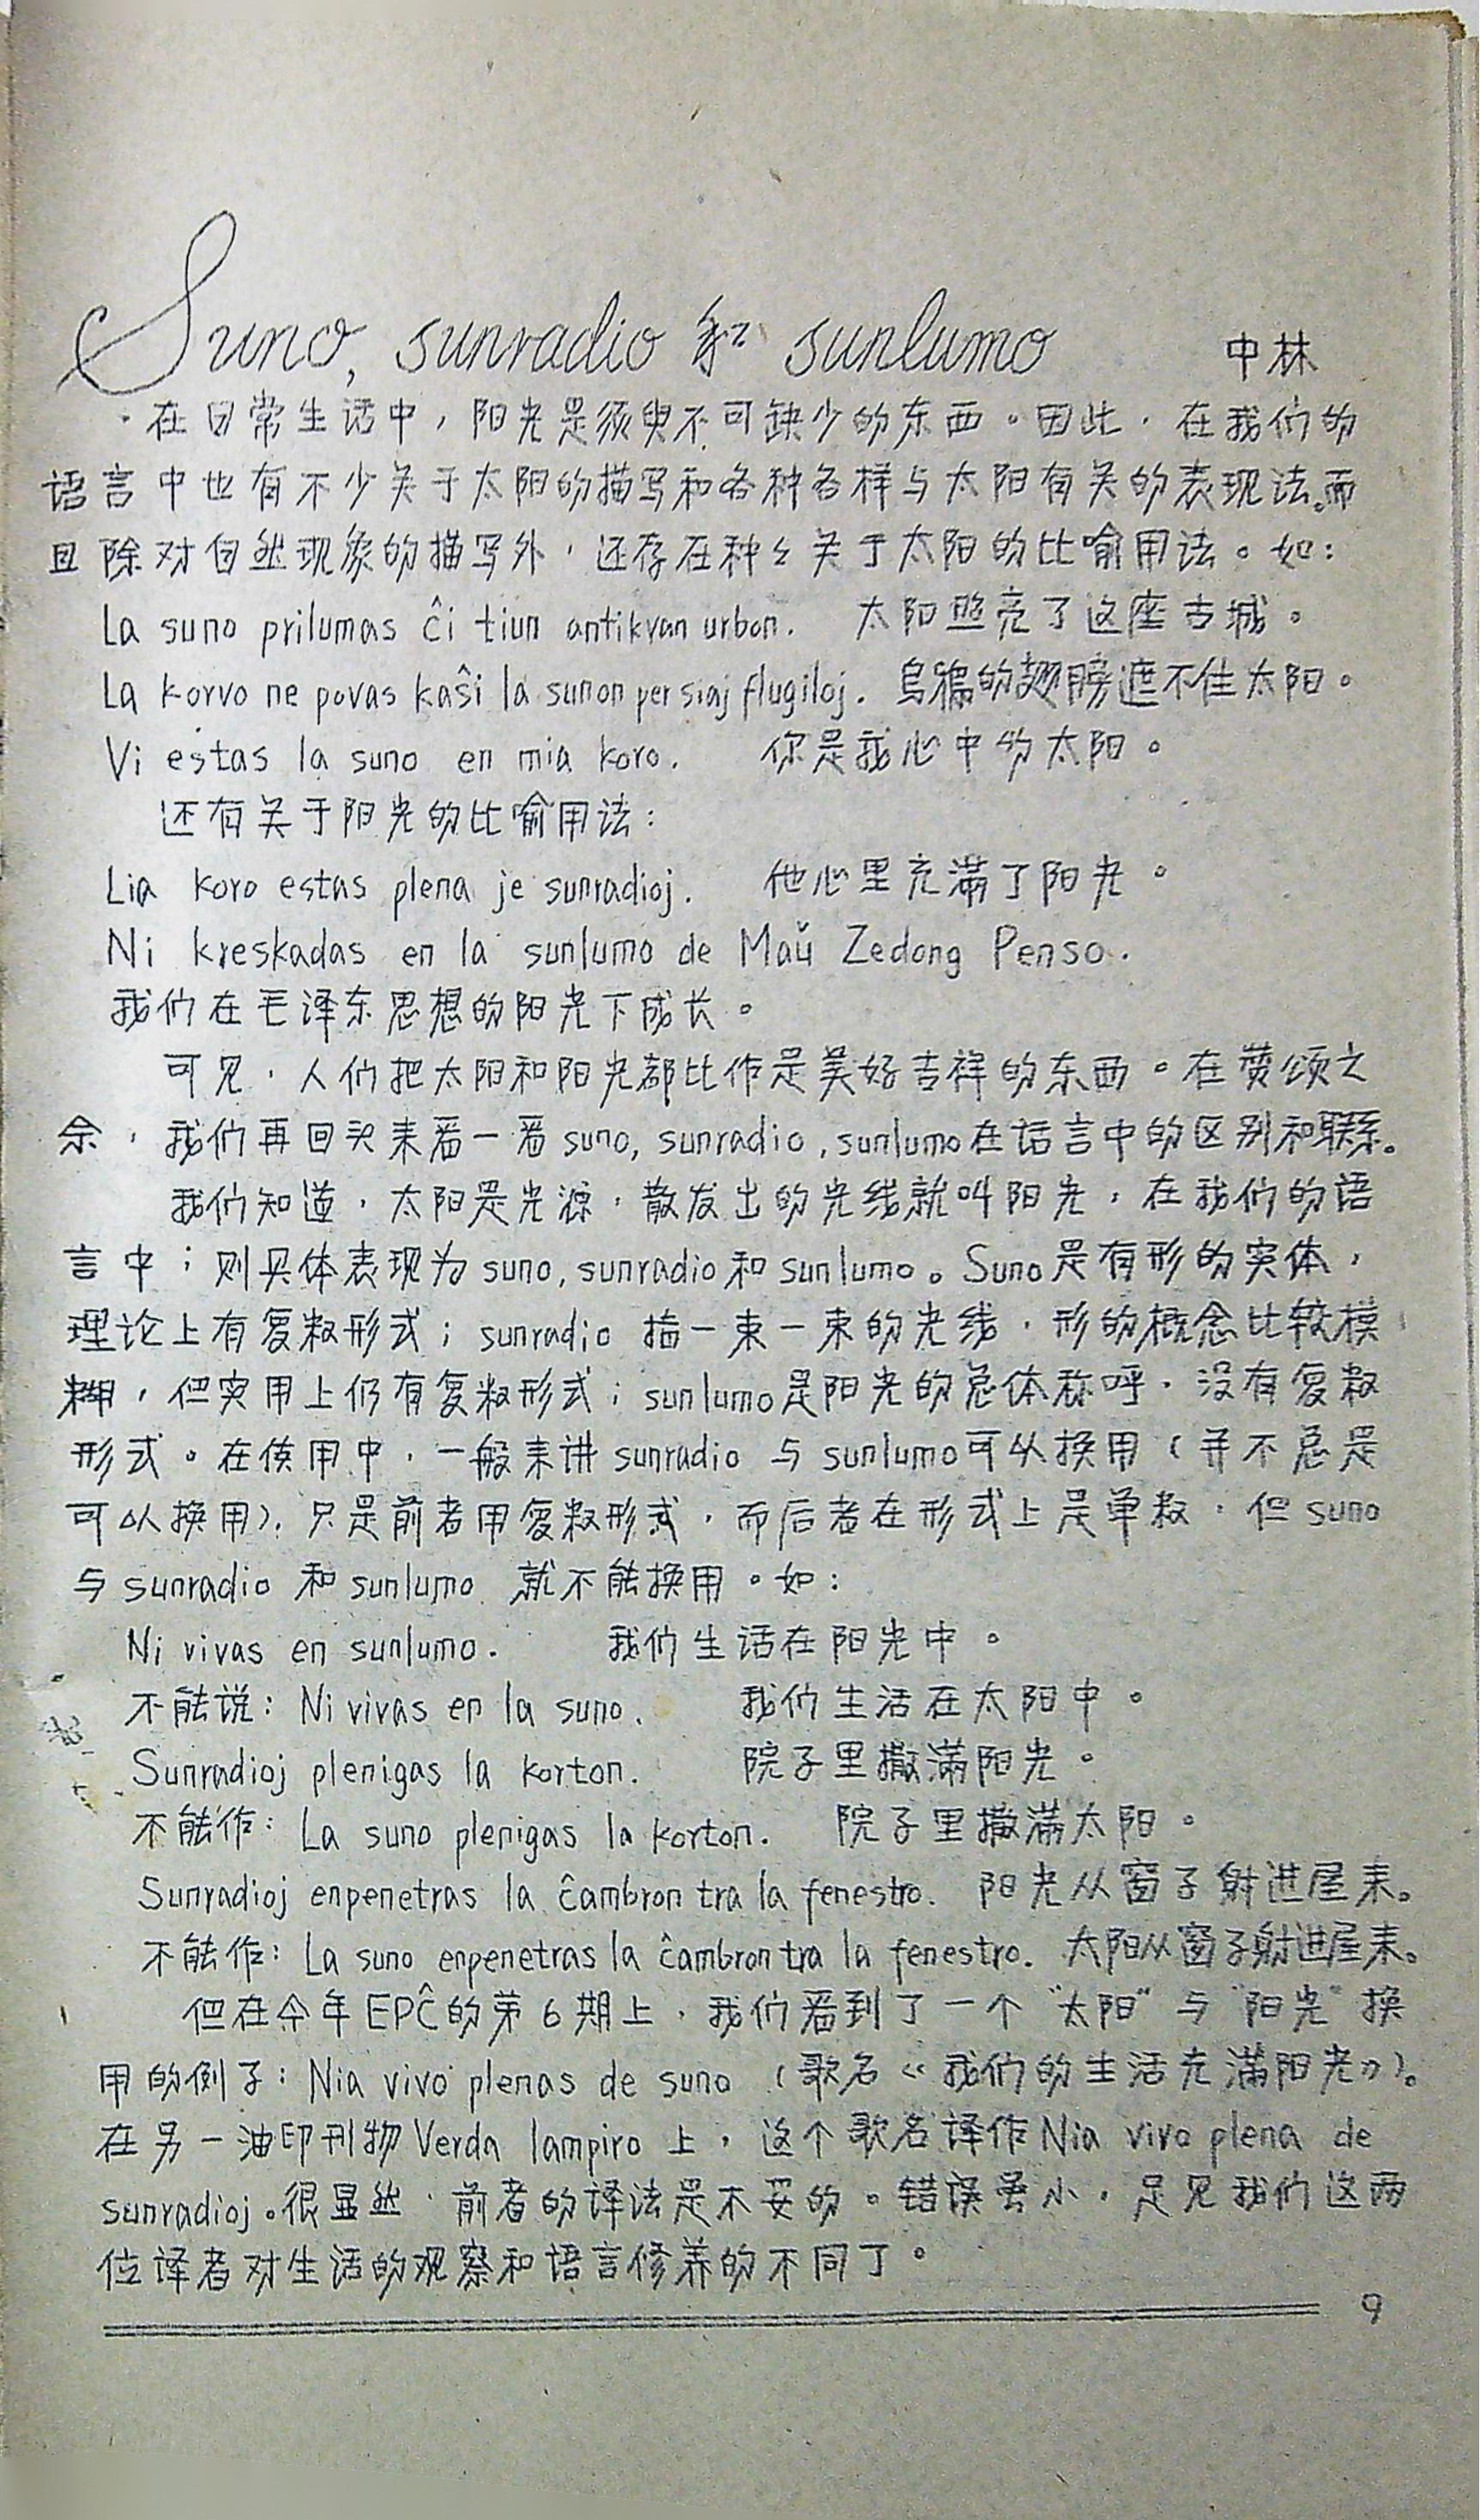 Suno, sunradio 和 sunlumo 中林
在日常生活中，阳光是须臾不可缺少的东西。因此，在我们的
语言中也有不少关于太阳的描写和各种各样与太阳有关的表现法。而
且除对自然现象的描写外，还存在种々关于太阳的比喻用法。如：
La suno prilumas ĉi tiun antikvan urbon. 太阳照亮了这座古城。
La korvo ne povas kaŝi la sunon per siaj flugiloj. 乌鸦的翅膀遮不住太阳。
Vi estas la suno en mia koro. 你是我心中的太阳。
还有关于阳光的比喻用法：
Lia koro estas plena je sunradioj. 他心里充满了阳光。
Ni kreskadas en la sunlumo de Maŭ Zedong Penso.
我们在毛泽东思想的阳光下成长。
可见，人们把太阳和阳光都比作是美好吉祥的东西。在赞颂之
余，我们再回头来看一看 suno, sunradio, sunlumo 在语言中的区别和联系。
我们知道，太阳是光源，散发出的光线就叫阳光，在我们的语
言中；则具体表现为 suno, sunradio 和 sunlumo。Suno 是有形的实体，
理论上有复数形式；sunradio 指一束一束的光线，形的概念比较模
糊，但实用上仍有复数形式；sunlumo 是阳光的总体称呼，没有复数
形式。在使用中，一般来讲 sunradio 与 sunlumo 可以换用（并不总是
可以换用），只是前者用复数形式，而后者在形式上是单数，但 suno
与 sunradio 和 sunlumo 就不能换用。如：
Ni vivas en sunlumo. 我们生活在阳光中。
不能说：Ni vivas en la suno. 我们生活在太阳中。
Sunradioj plenigas la korton. 院子里撒满阳光。
不能作：La suno plenigas la korton. 院子里撒满太阳。
Sunradioj enpenetras la ĉambron tra la fenestro. 阳光从窗子射进屋来。
不能作：La suno enpenetras la ĉambron tra la fenestro. 太阳从窗子射进屋来。
但在今年 EPĈ 的第 6 期上，我们看到了一个“太阳”与“阳光”换
用的例子：Nia vivo plenas de suno（歌名《我们的生活充满阳光》）。
在另一油印刊物 Verda lampiro 上，这个歌名译作 Nia vivo plena de
sunradioj。很显然，前者的译法是不妥的。错误虽小，足见我们这两
位译者对生活的观察和语言修养的不同了。
9